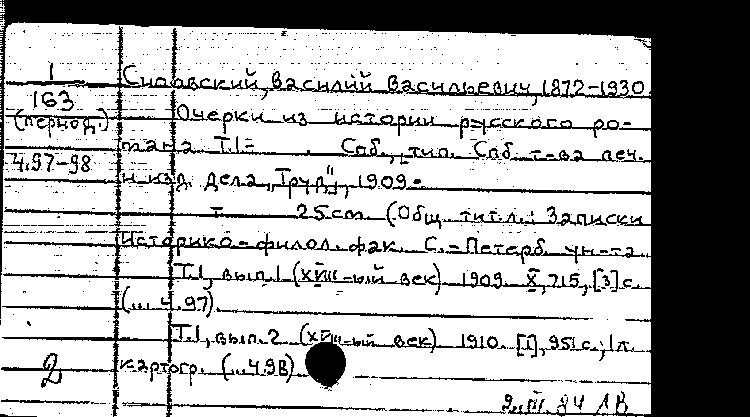 1
163
(период.)
4.97-98
Сиповский, Василий Васильевич, 1872-1930.
Очерки из истории русского ро-
мана. Т.1= . Спб., тип. Спб. т-ва печ.
и изд. дела „Труд", 1909-
т. 25cm. (Общ. тит.л.: Записки
Историко-филол. фак. С.-Петерб. ун-та.
Т.1, вып.1 (XVIII-ый век) 1909. X, 715, [3] с.
(... ч.97)
Т.1, вып.2 (XVIII-ый век) 1910. [1], 951 с., 1 л.
картогр. (...ч.98)
2
2.III.84 ЛВ